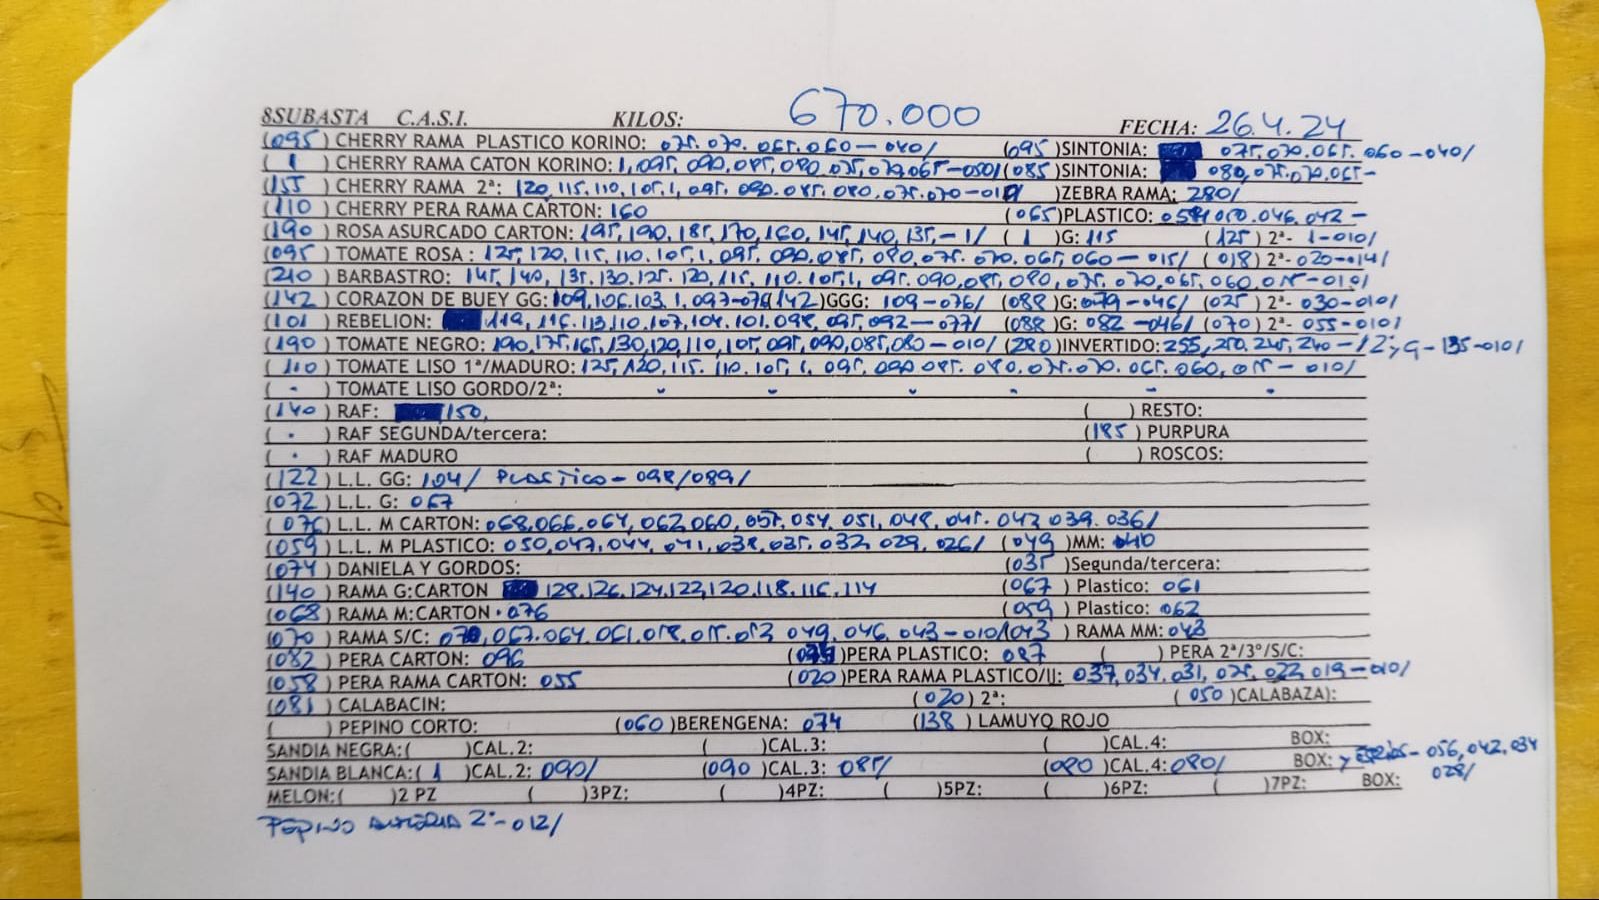 8SUBASTA C.A.S.I. KILOS: 670.000 FECHA: 26.4.24
(095) CHERRY RAMA PLASTICO KORINO: 075.070.065.060-040/ (095)SINTONIA: 075.070.065.060-040/
(1) CHERRY RAMA CATON KORINO: 1,095,090,085,080,075,070,065-050/ (085)SINTONIA: 080,075,070,065-
(155) CHERRY RAMA 2ª: 120,115,110,105,1,095.090.085.080.075.070-010 ( )ZEBRA RAMA: 280/
(110) CHERRY PERA RAMA CARTON: 160 (065)PLASTICO: 054,050.046.042-
(190) ROSA ASURCADO CARTON: 195,190,185,170,160,145,140,135,-1/ (1)G: 115 (125) 2ª- 1-010/
(095) TOMATE ROSA: 125,120,115.110.105,1,095,090,085,080,075.070.065,060-015/ (018) 2ª-020-014/
(210) BARBASTRO: 145,140,135.130.125.120,115,110.105,1,095.090,085,080,075,070,065,060,015-010/
(142) CORAZON DE BUEY GG: 109,106,103,1,097-076 (142)GGG: 109-076/ (088)G: 079-046/ (025) 2ª- 030-010/
(101) REBELION: 119,116,113,110,107,104,101,098,095,092-077/ (088)G: 082-046/ (070) 2ª- 055-010/
(190) TOMATE NEGRO: 190,175,165,130,120,110,105,095,090,085,080-010/ (280)INVERTIDO: 255,250,245,240-12; G-135-010/
(110) TOMATE LISO 1ª/MADURO: 125,120,115.110.105,1,095,090,085.080,075.070.065.060,015-010/
( - ) TOMATE LISO GORDO/2ª:
(140) RAF: 150, ( ) RESTO:
( - ) RAF SEGUNDA/tercera: (185) PURPURA
( - ) RAF MADURO ( ) ROSCOS:
(122) L.L. GG: 104/ PLASTICO-098/089/
(072) L.L. G: 067
(076) L.L. M CARTON: 068,066,064,062,060,057,054,051,048,045.042,039.036/
(059) L.L. M PLASTICO: 050,047,044,041,038,035,032,029,026/ (049)MM: 040
(074) DANIELA Y GORDOS: (035)Segunda/tercera:
(140) RAMA G:CARTON 128,126,124,122,120,118,116,114 (067) Plastico: 061
(068) RAMA M:CARTON 076 (059) Plastico: 062
(070) RAMA S/C: 070,067.064.061,058,055,052,049,046,043-010/ (043) RAMA MM: 043
(082) PERA CARTON: 096 PERA PLASTICO: 087 ( ) PERA 2ª/3º/S/C:
(058) PERA RAMA CARTON: 055 (020)PERA RAMA PLASTICO/II: 037,034,031,025,022,019-010/
(081) CALABACIN: (020) 2ª: (050)CALABAZA):
( ) PEPINO CORTO: (060)BERENGENA: 074 (138) LAMUYO ROJO
SANDIA NEGRA:( )CAL.2: ( )CAL.3: ( )CAL.4: BOX:
SANDIA BLANCA:(1)CAL.2: 090/ (090)CAL.3: 085/ (080)CAL.4: 080/ BOX: 056,042,034
028/
MELON:( )2 PZ ( )3PZ: ( )4PZ: ( )5PZ: ( )6PZ: ( )7PZ: BOX:
PEPINO ALMERIA 2ª-012/